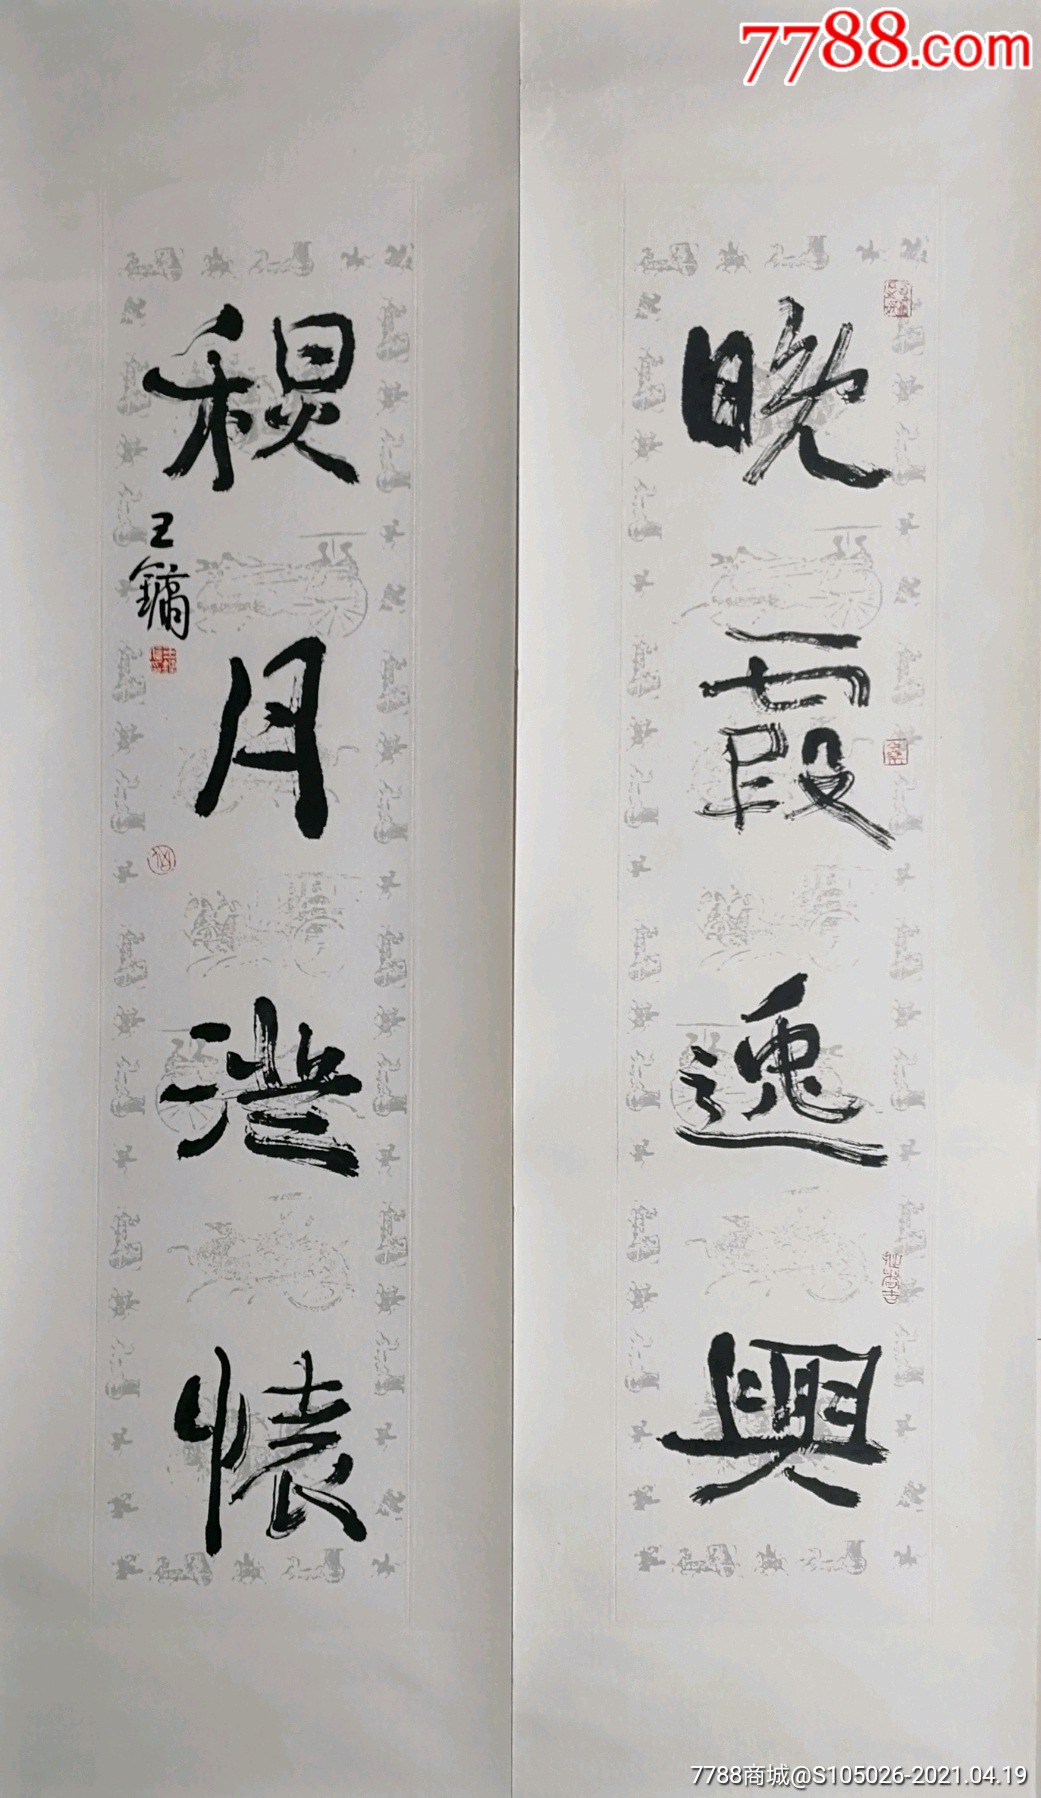 7788.com
晚霞逸興
秋月澄懷
王鏞
7788商城@S105026-2021.04.19